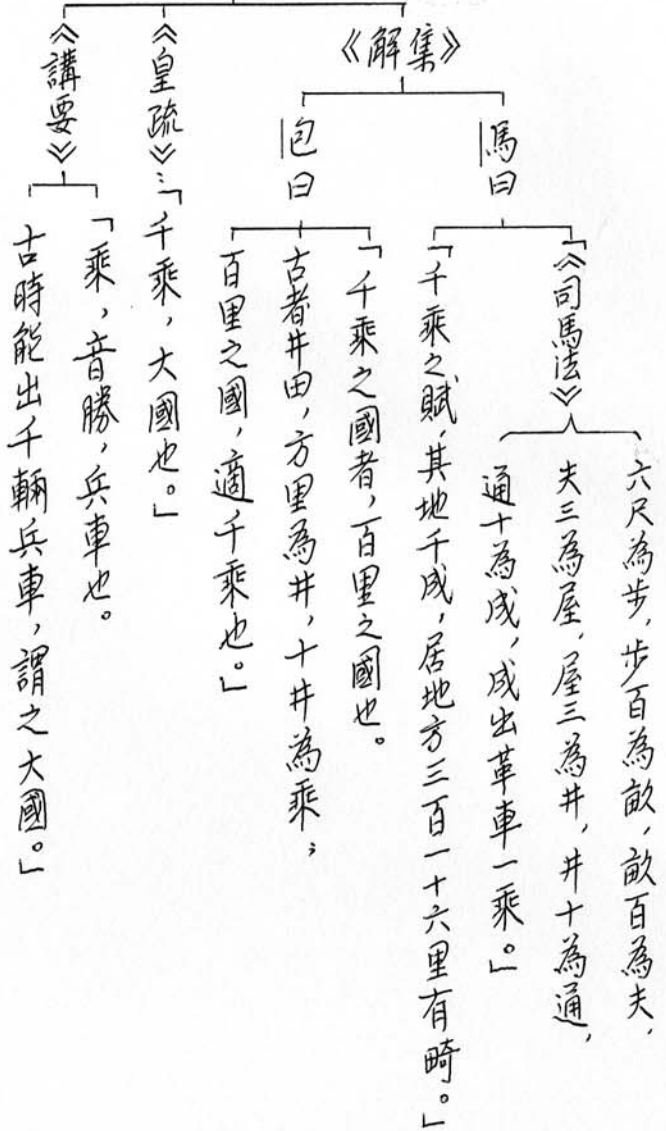 《集解》
馬曰
「《司馬法》
六尺為步，步百為畝，畝百為夫，
夫三為屋，屋三為井，井十為通，
通十為成，成出革車一乘。」
「千乘之賦，其地千成，居地方三百一十六里有畸。」
包曰
「千乘之國者，百里之國也。
古者井田，方里為井，十井為乘；
百里之國，適千乘也。」
《皇疏》：「千乘，大國也。」
《講要》
「乘，音勝，兵車也。
古時能出千輛兵車，謂之大國。」